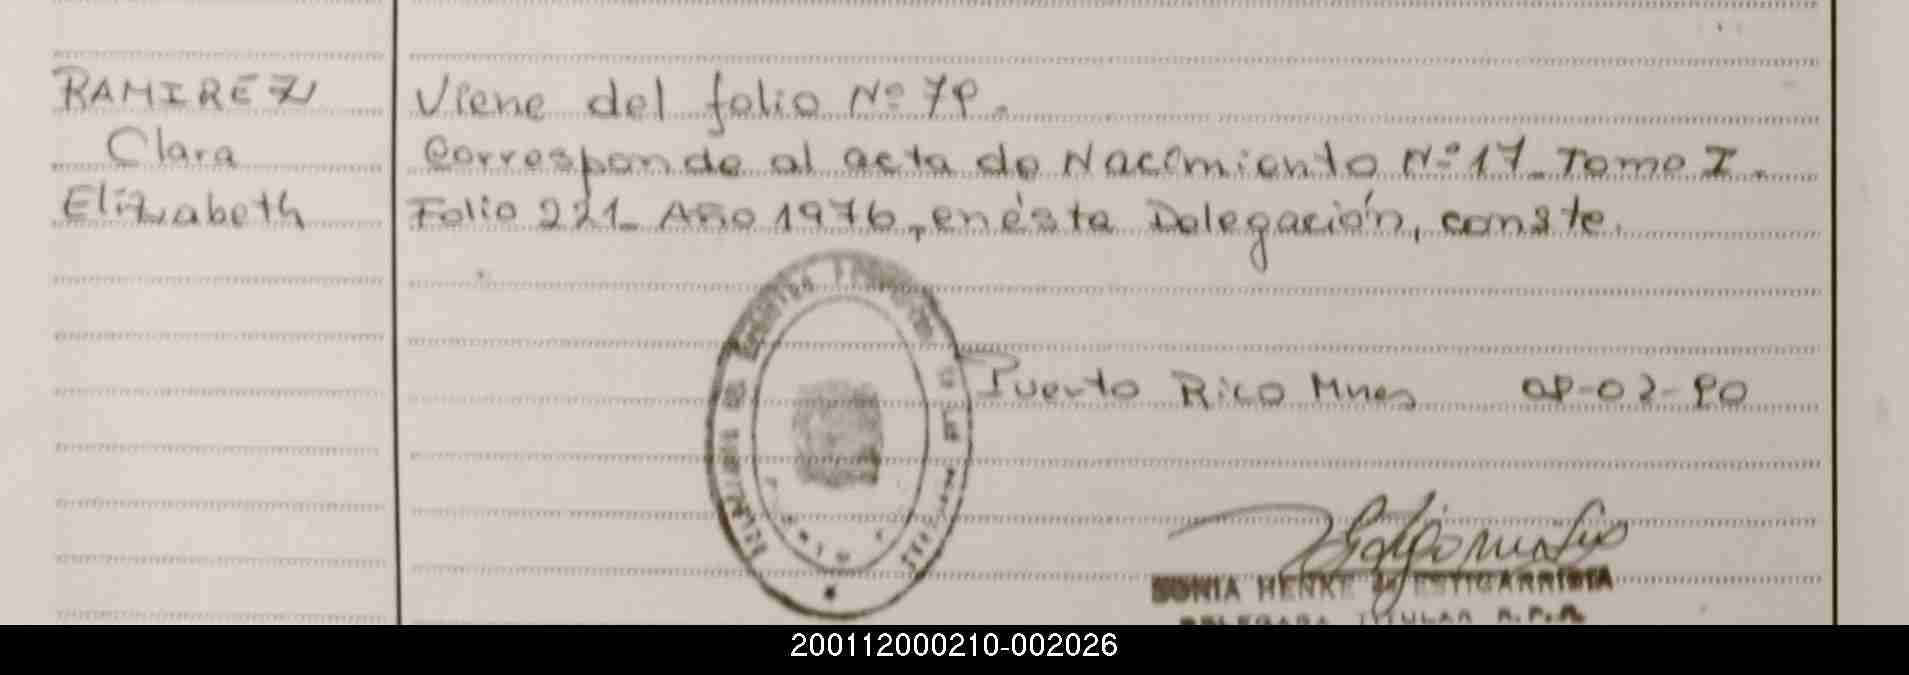 RAMIREZ
Clara
Elizabeth
Viene del folio Nº 79.
Corresponde al acta de Nacimiento Nº 17 - Tomo I.
Folio 221 - Año 1976, en ésta Delegación, conste.
Puerto Rico Mnes 09-02-90
SONIA HENKE de ESTIGARRIBIA
DELEGADA TITULAR R.P.P.
200112000210-002026